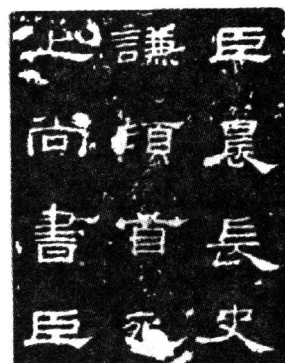 臣晨長史
謙頓首死
上尚書臣